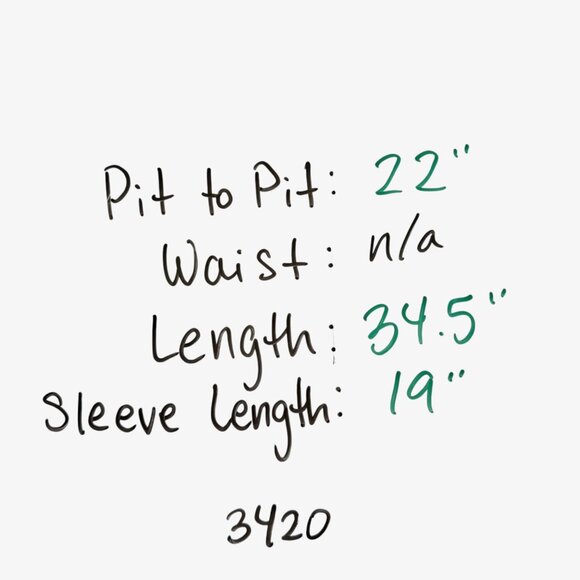 Pit to Pit: 22"
Waist: n/a
Length: 34.5"
Sleeve Length: 19"
3420